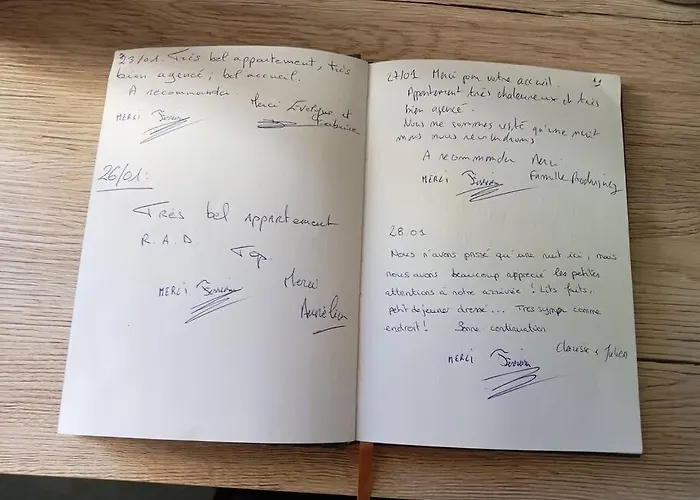 23/01. Très bel appartement, très
bien agencé ; bel accueil.
A recommander.
Merci Evelyne et
MERCI
26/01:
Très bel appartement
R.A.D. Top
Merci
MERCI
Aurélien
27/01 Merci pour votre accueil.
Appartement très chaleureux et très
bien agencé.
Nous ne sommes resté qu'une nuit
mais nous reviendrons
A recommander Merci
MERCI Famille
28.01
Nous n'avons passé qu'une nuit ici, mais
nous avons beaucoup apprécié les petites
attentions à notre arrivée ! Lits faits,
petit dejeuner dressé... Très sympa comme
endroit ! Bonne continuation
Clarisse & Julien
MERCI